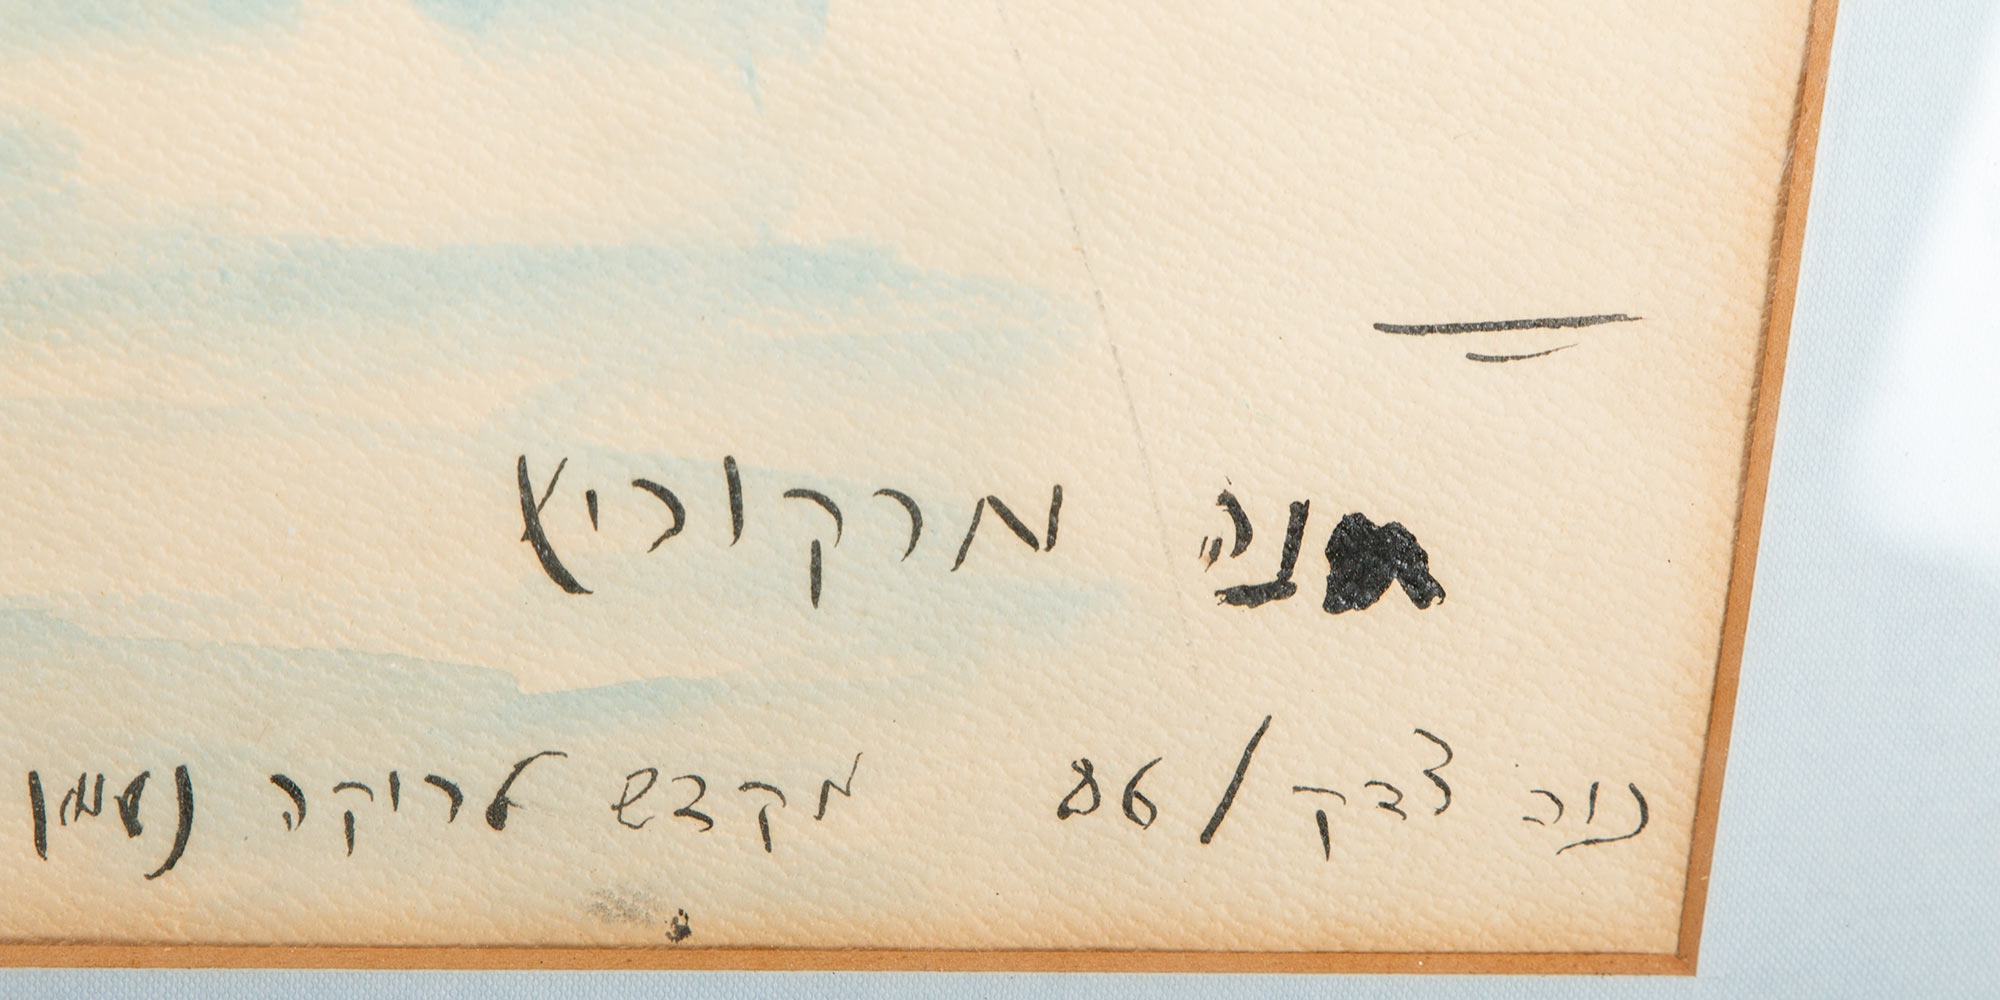 חנה מרקוביץ
נוה צדק / 86 מקדש לריקה נעמן